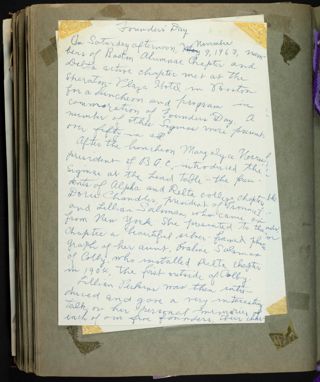 Founders' Day
On Saturday afternoon, November 9, 1963, mem-
bers of Boston Alumnae Chapter and
Delta active chapter met at the
Sheraton-Plaza Hotel in Boston
for a luncheon and program in
commemoration of Founders Day. A
number of other Sigmas were present,
over fifty in all.
After the luncheon
president of B.A.C. introduced the
Sigmas at the head table - the
dents of Alpha and Delta college chapters
Doris Chandler, president of
and Lillian Salsman who came on
from New York. She presented to the
Chapter a beautiful silver framed photo-
graph of her aunt, Evaline Salsman
of Colby, who installed Delta chapter
in 1904, the first outside of Colby.
Lillian Perkins was then intro-
duced and gave a very interesting
talk on her personal memories of
each of our five founders.